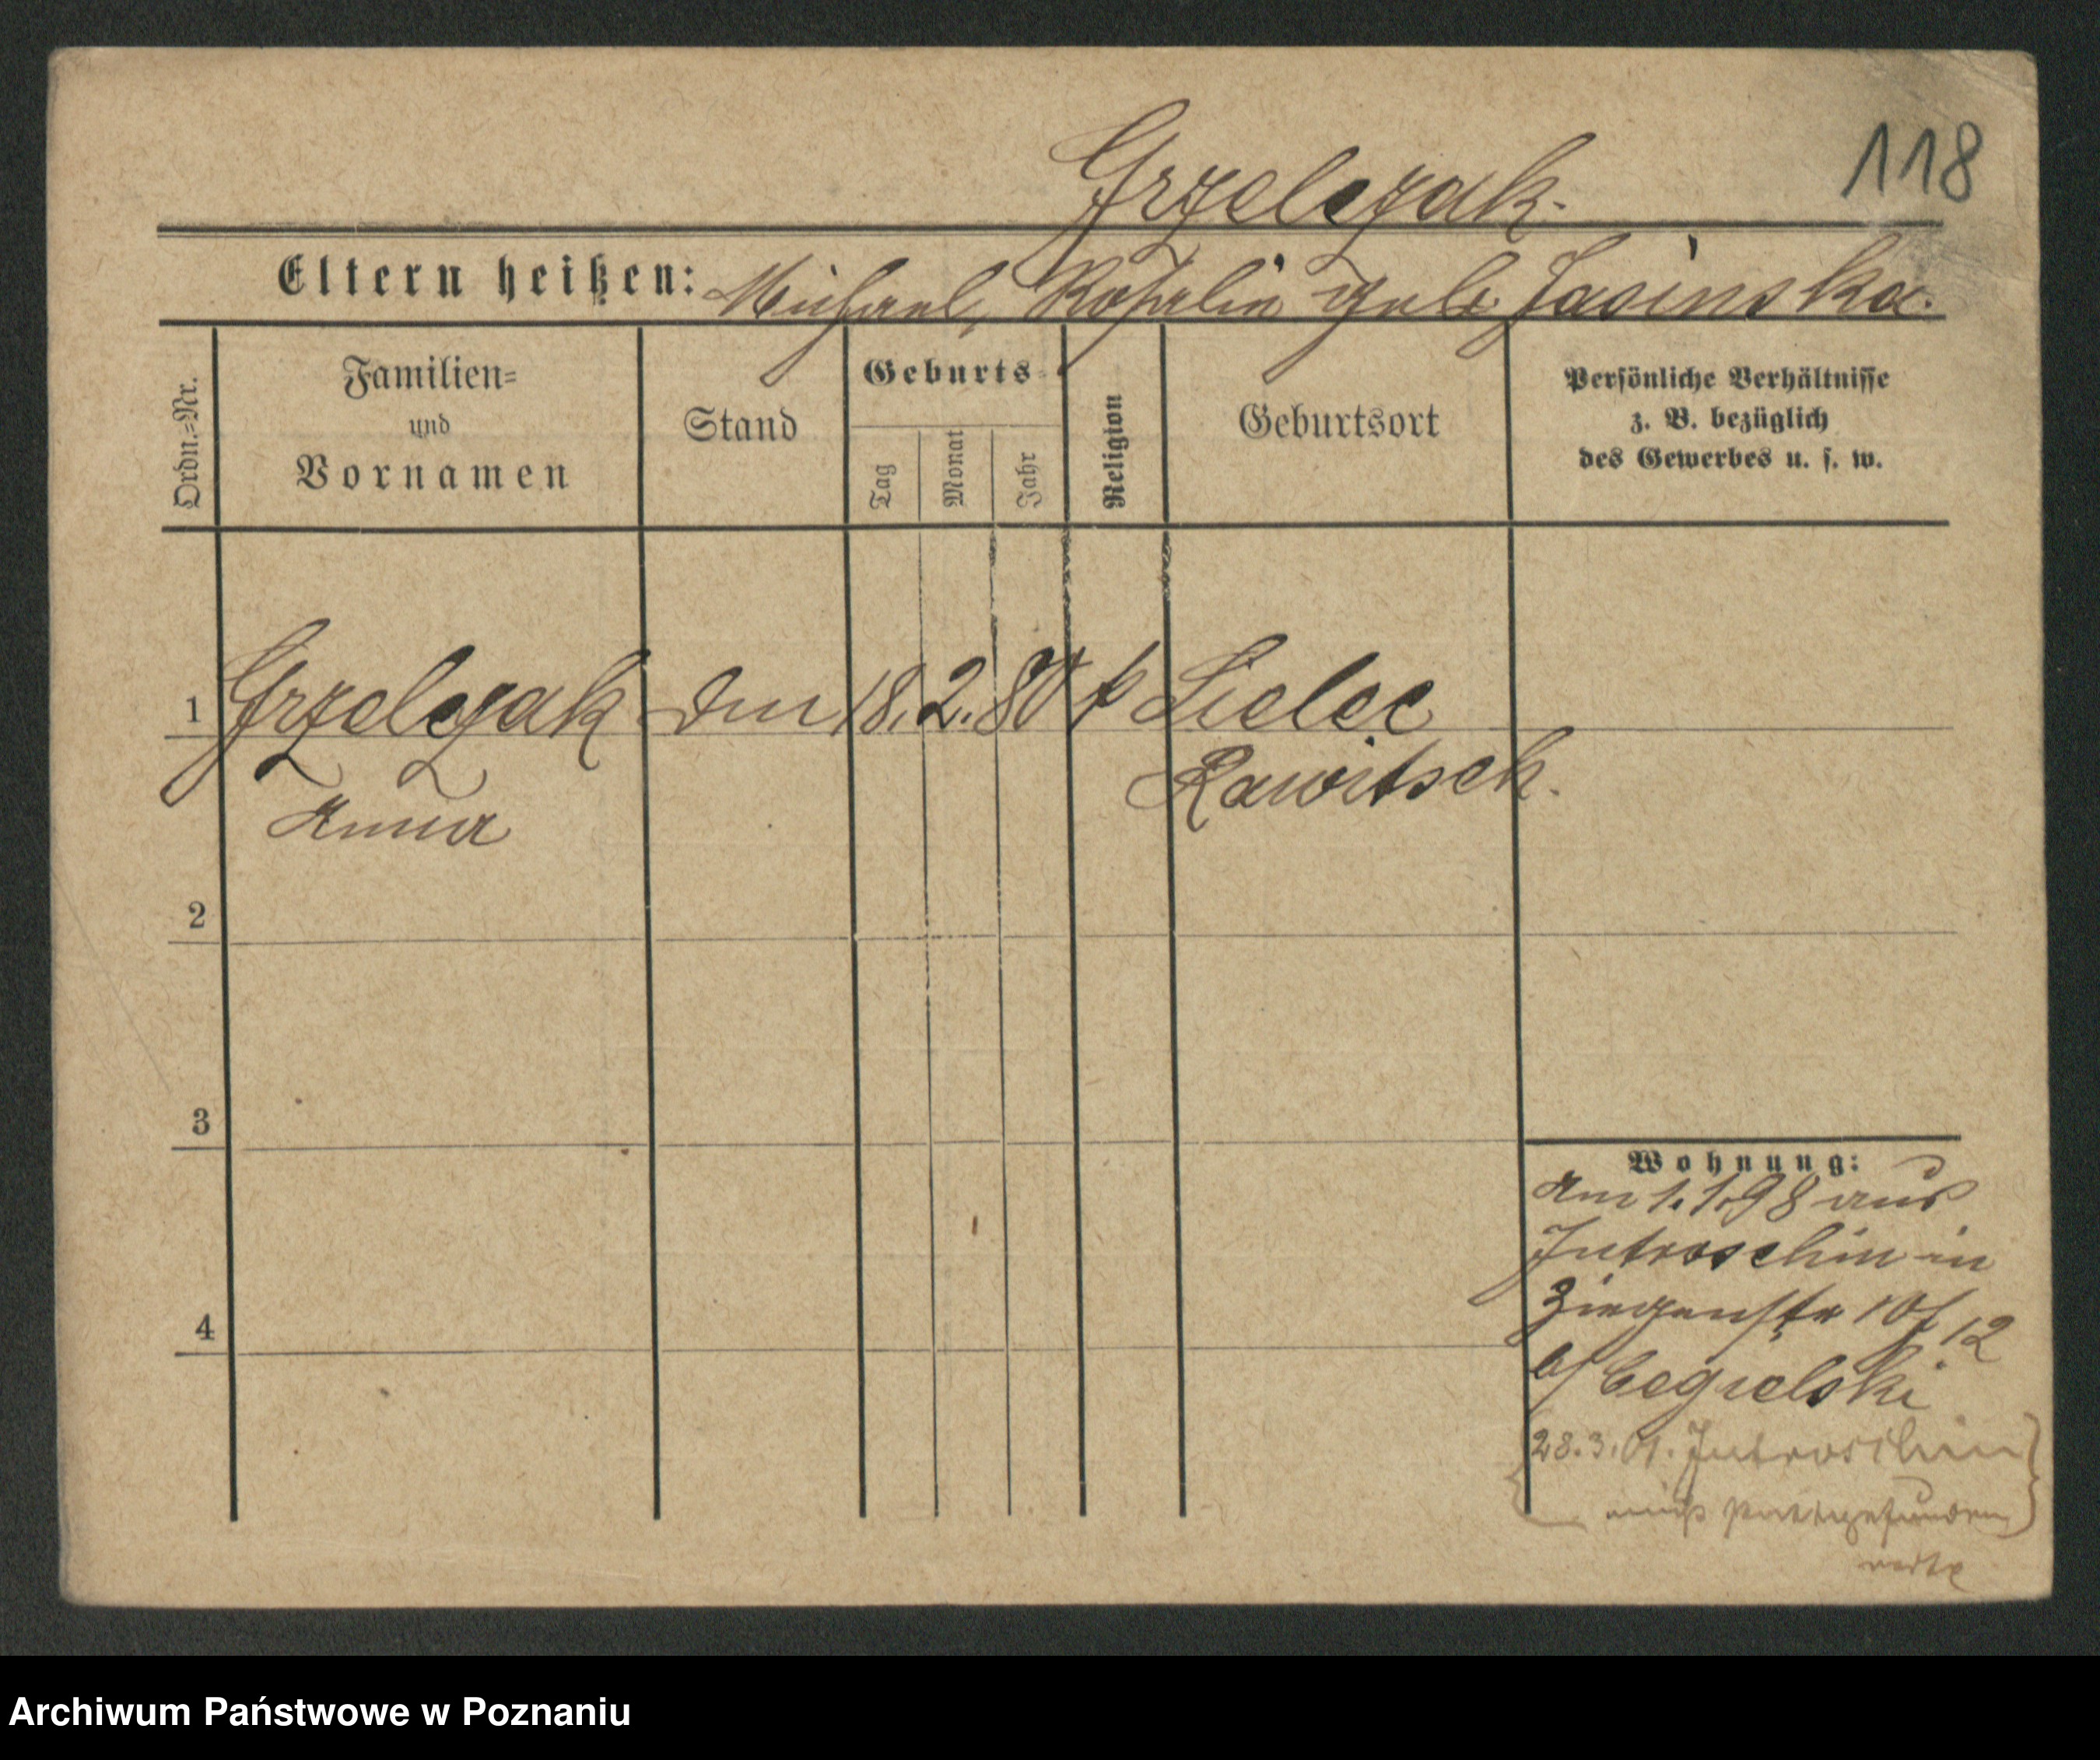 118
Grzelczak.
Eltern heißen: Michael, Rosalie geb. Jasinska.
Ordn.=Nr.
Familien=
und
Vornamen
Stand
Geburts=
Tag
Monat
Jahr
Religion
Geburtsort
Persönliche Verhältnisse
z. B. bezüglich
des Gewerbes u. s. w.
1 Grzelczak 18. 2. 80 k Sielec
Anna Rawitsch.
2
3
4
Wohnung:
Am 1.1.98 aus
Jutroschin in
Ziegenstr 10/12
b/ Cegielski
28.3.01. Jutroschin